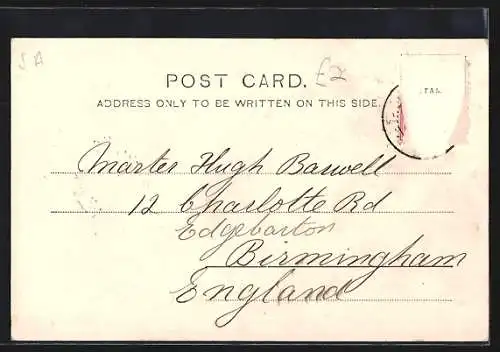 S A
£2
POST CARD.
ADDRESS ONLY TO BE WRITTEN ON THIS SIDE.
Master Hugh Barwell
12 Charlotte Rd
Edgebarton
Birmingham
England